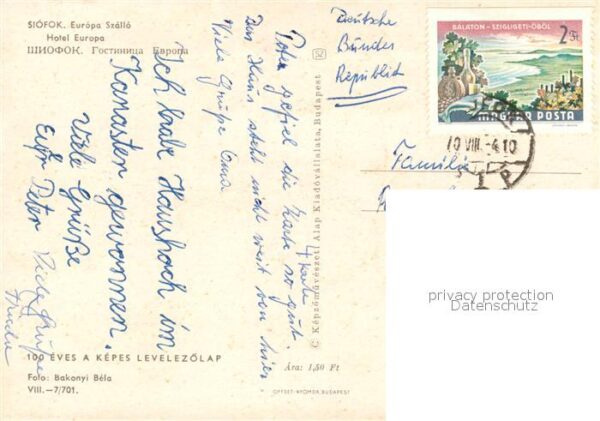 SIÓFOK. Európa Szálló
Hotel Europa
ШИОФОК. Гостиница Европа
Ich habe Haushoch im
Kanasten gewonnen.
Viele Grüße
Euer Peter
Viele Grüße
Peter gefiel die Karte so gut.
Das Haus steht nicht weit von hier
Viele Grüße Oma
100 ÉVES A KÉPES LEVELEZŐLAP
Foto: Bakonyi Béla
VIII.—7/701.
© Képzőművészeti Alap Kiadóvállalata, Budapest
Ára: 1,50 Ft
OFFSET-NYOMDA, BUDAPEST
Deutsche
Bundes
Republik
BALATON - SZIGLIGETI-ÖBÖL
2 Ft
MAGYAR POSTA
70 VIII. -4. 10
Familie
privacy protection
Datenschutz